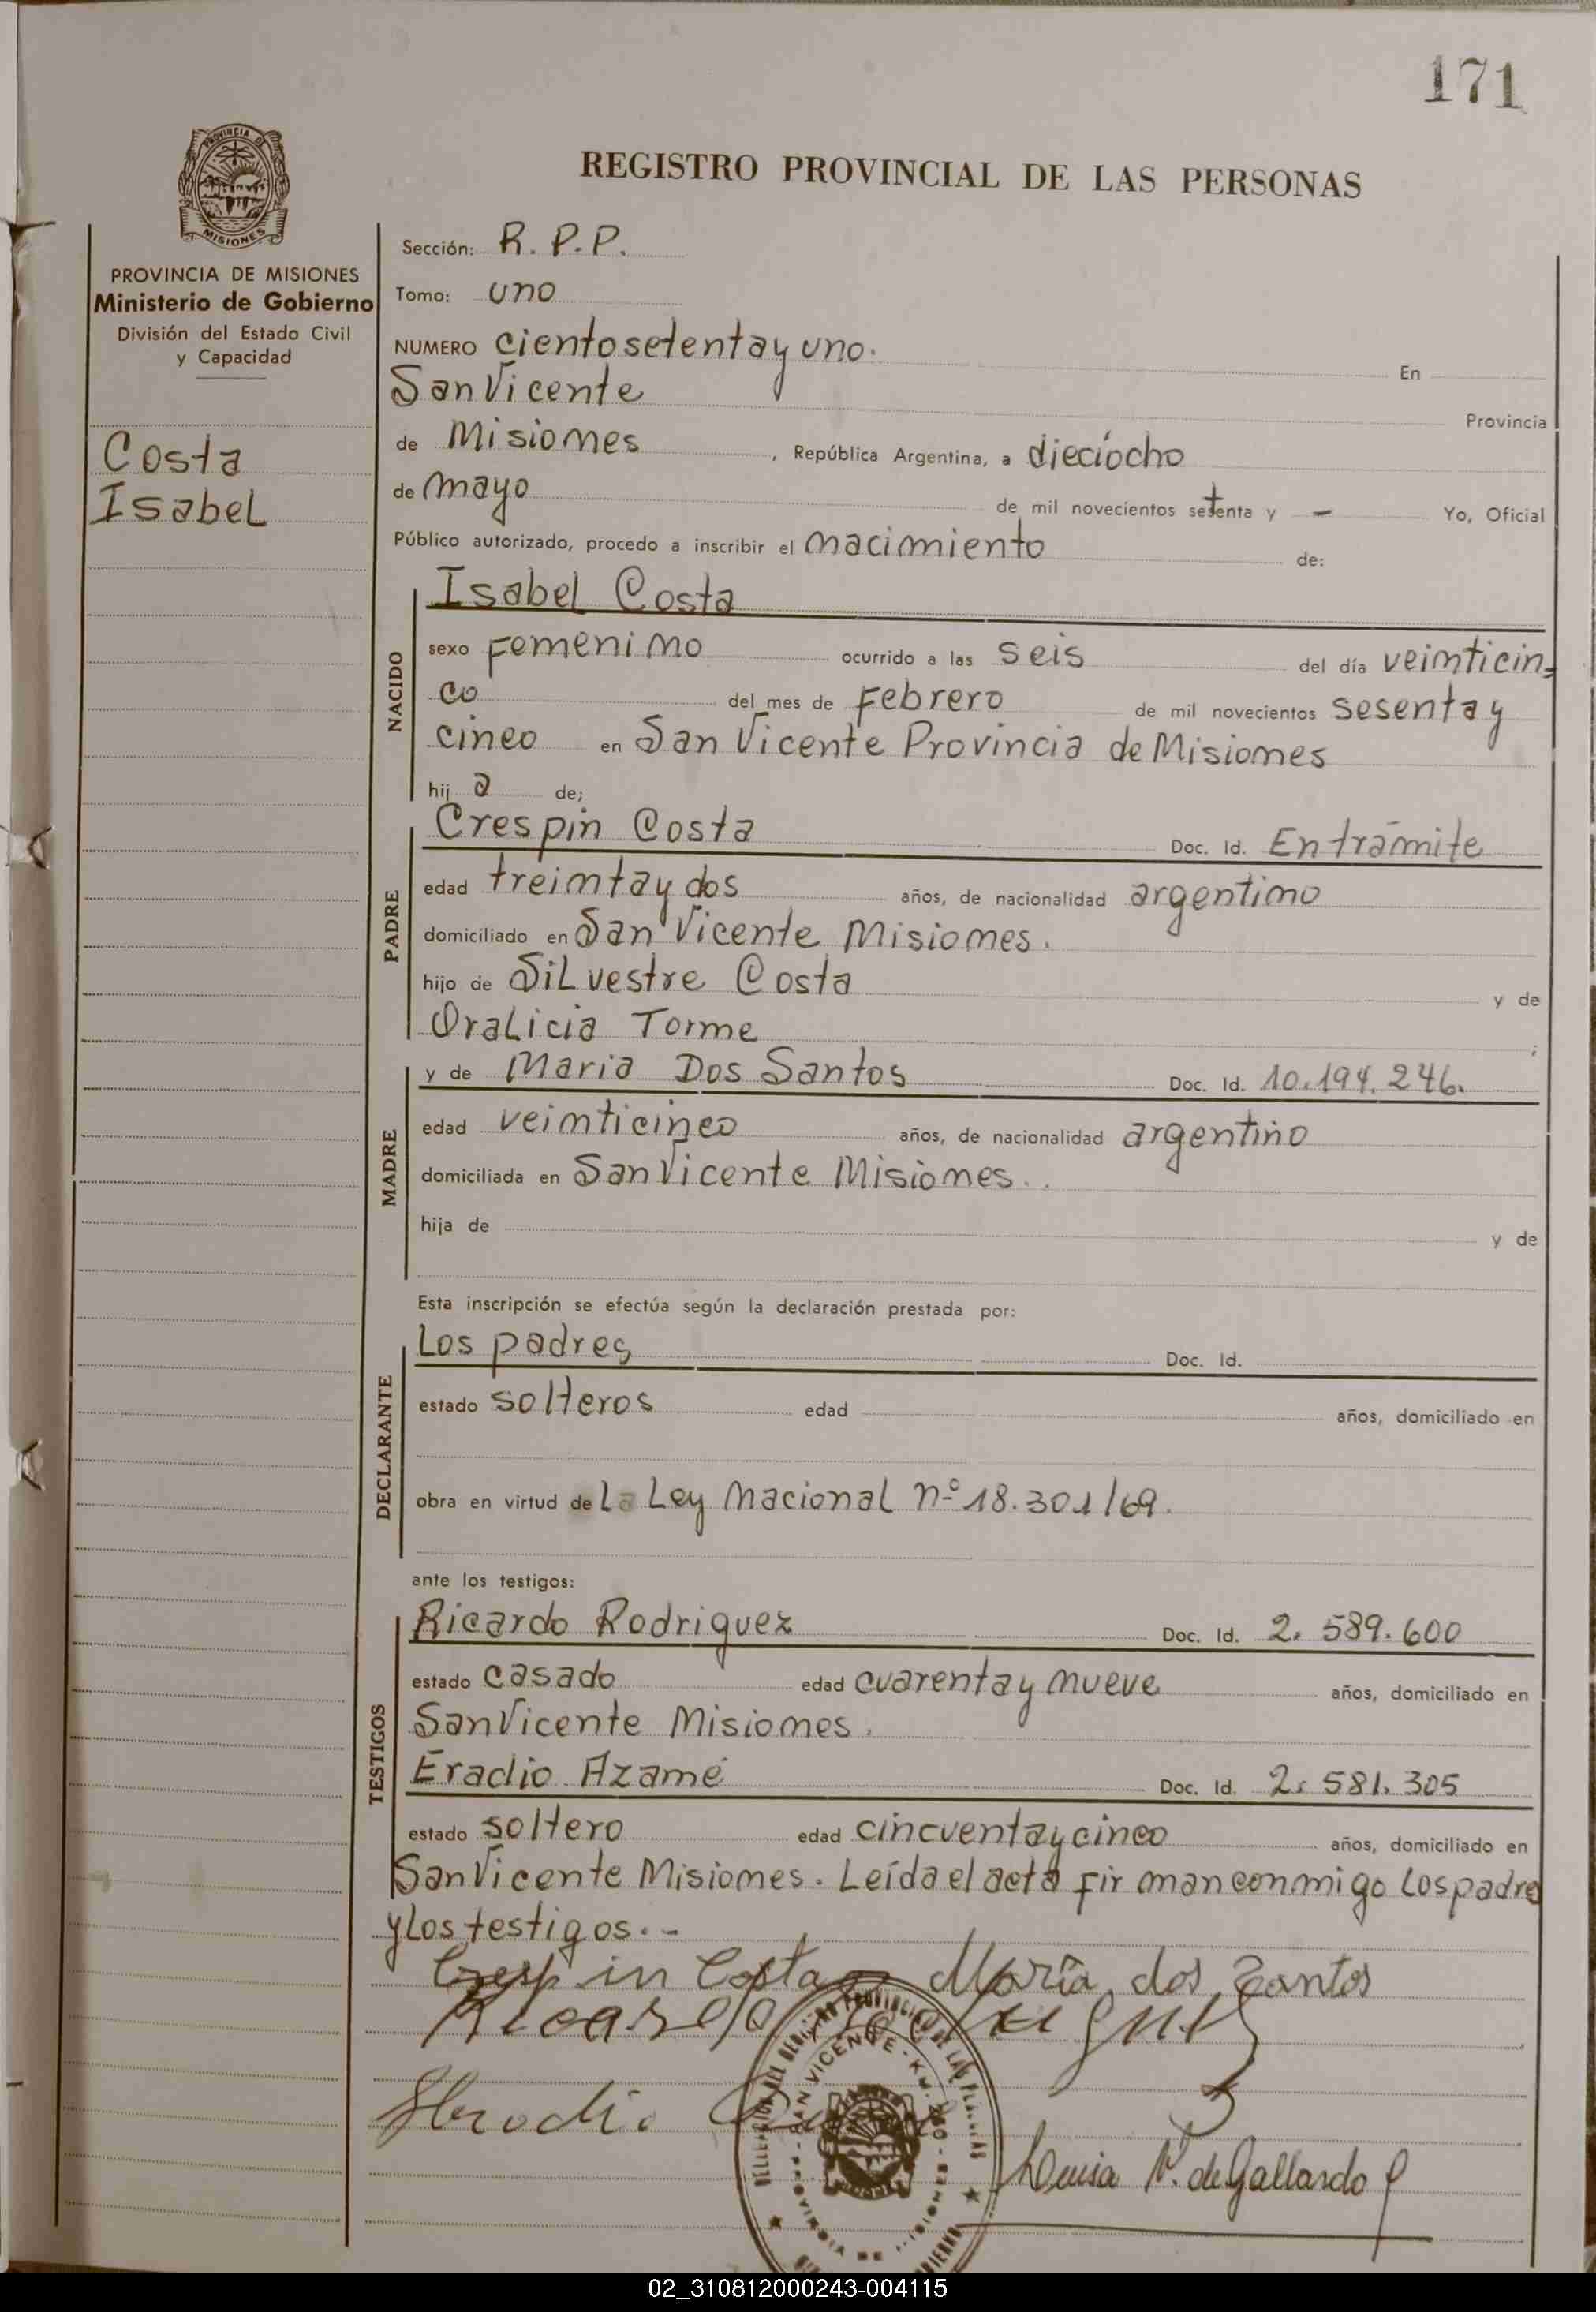 171
PROVINCIA DE
MISIONES
REGISTRO PROVINCIAL DE LAS PERSONAS
PROVINCIA DE MISIONES
Ministerio de Gobierno
División del Estado Civil
y Capacidad
Costa
Isabel
Sección: R. P. P.
Tomo: uno
NUMERO ciento setenta y uno. En
San Vicente Provincia
de Misiones, República Argentina, a dieciocho
de mayo de mil novecientos setenta y - Yo, Oficial
Público autorizado, procedo a inscribir el nacimiento de:
NACIDO
Isabel Costa
sexo Femenino ocurrido a las seis del día veinticin-
co del mes de Febrero de mil novecientos sesenta y
cinco en San Vicente Provincia de Misiones
hij a de;
PADRE
Crespin Costa Doc. Id. En trámite
edad treinta y dos años, de nacionalidad argentino
domiciliado en San Vicente Misiones.
hijo de Silvestre Costa y de
Oralicia Torme ;
MADRE
y de Maria Dos Santos Doc. Id. 10.194.246.
edad veinticinco años, de nacionalidad argentino
domiciliada en San Vicente Misiones.
hija de y de
Esta inscripción se efectúa según la declaración prestada por:
DECLARANTE
Los padres Doc. Id.
estado solteros edad años, domiciliado en
obra en virtud de La Ley Nacional nº 18.301/69.
ante los testigos:
TESTIGOS
Ricardo Rodriguez Doc. Id. 2. 589. 600
estado casado edad cuarenta y nueve años, domiciliado en
San Vicente Misiones.
Eradio Azame Doc. Id. 2. 581. 305
estado soltero edad cincuenta y cinco años, domiciliado en
San Vicente Misiones. Leída el acta firman conmigo los padre
y los testigos. -
Crespin Costa María dos Santos
Luisa V. de Gallardo
02_310812000243-004115